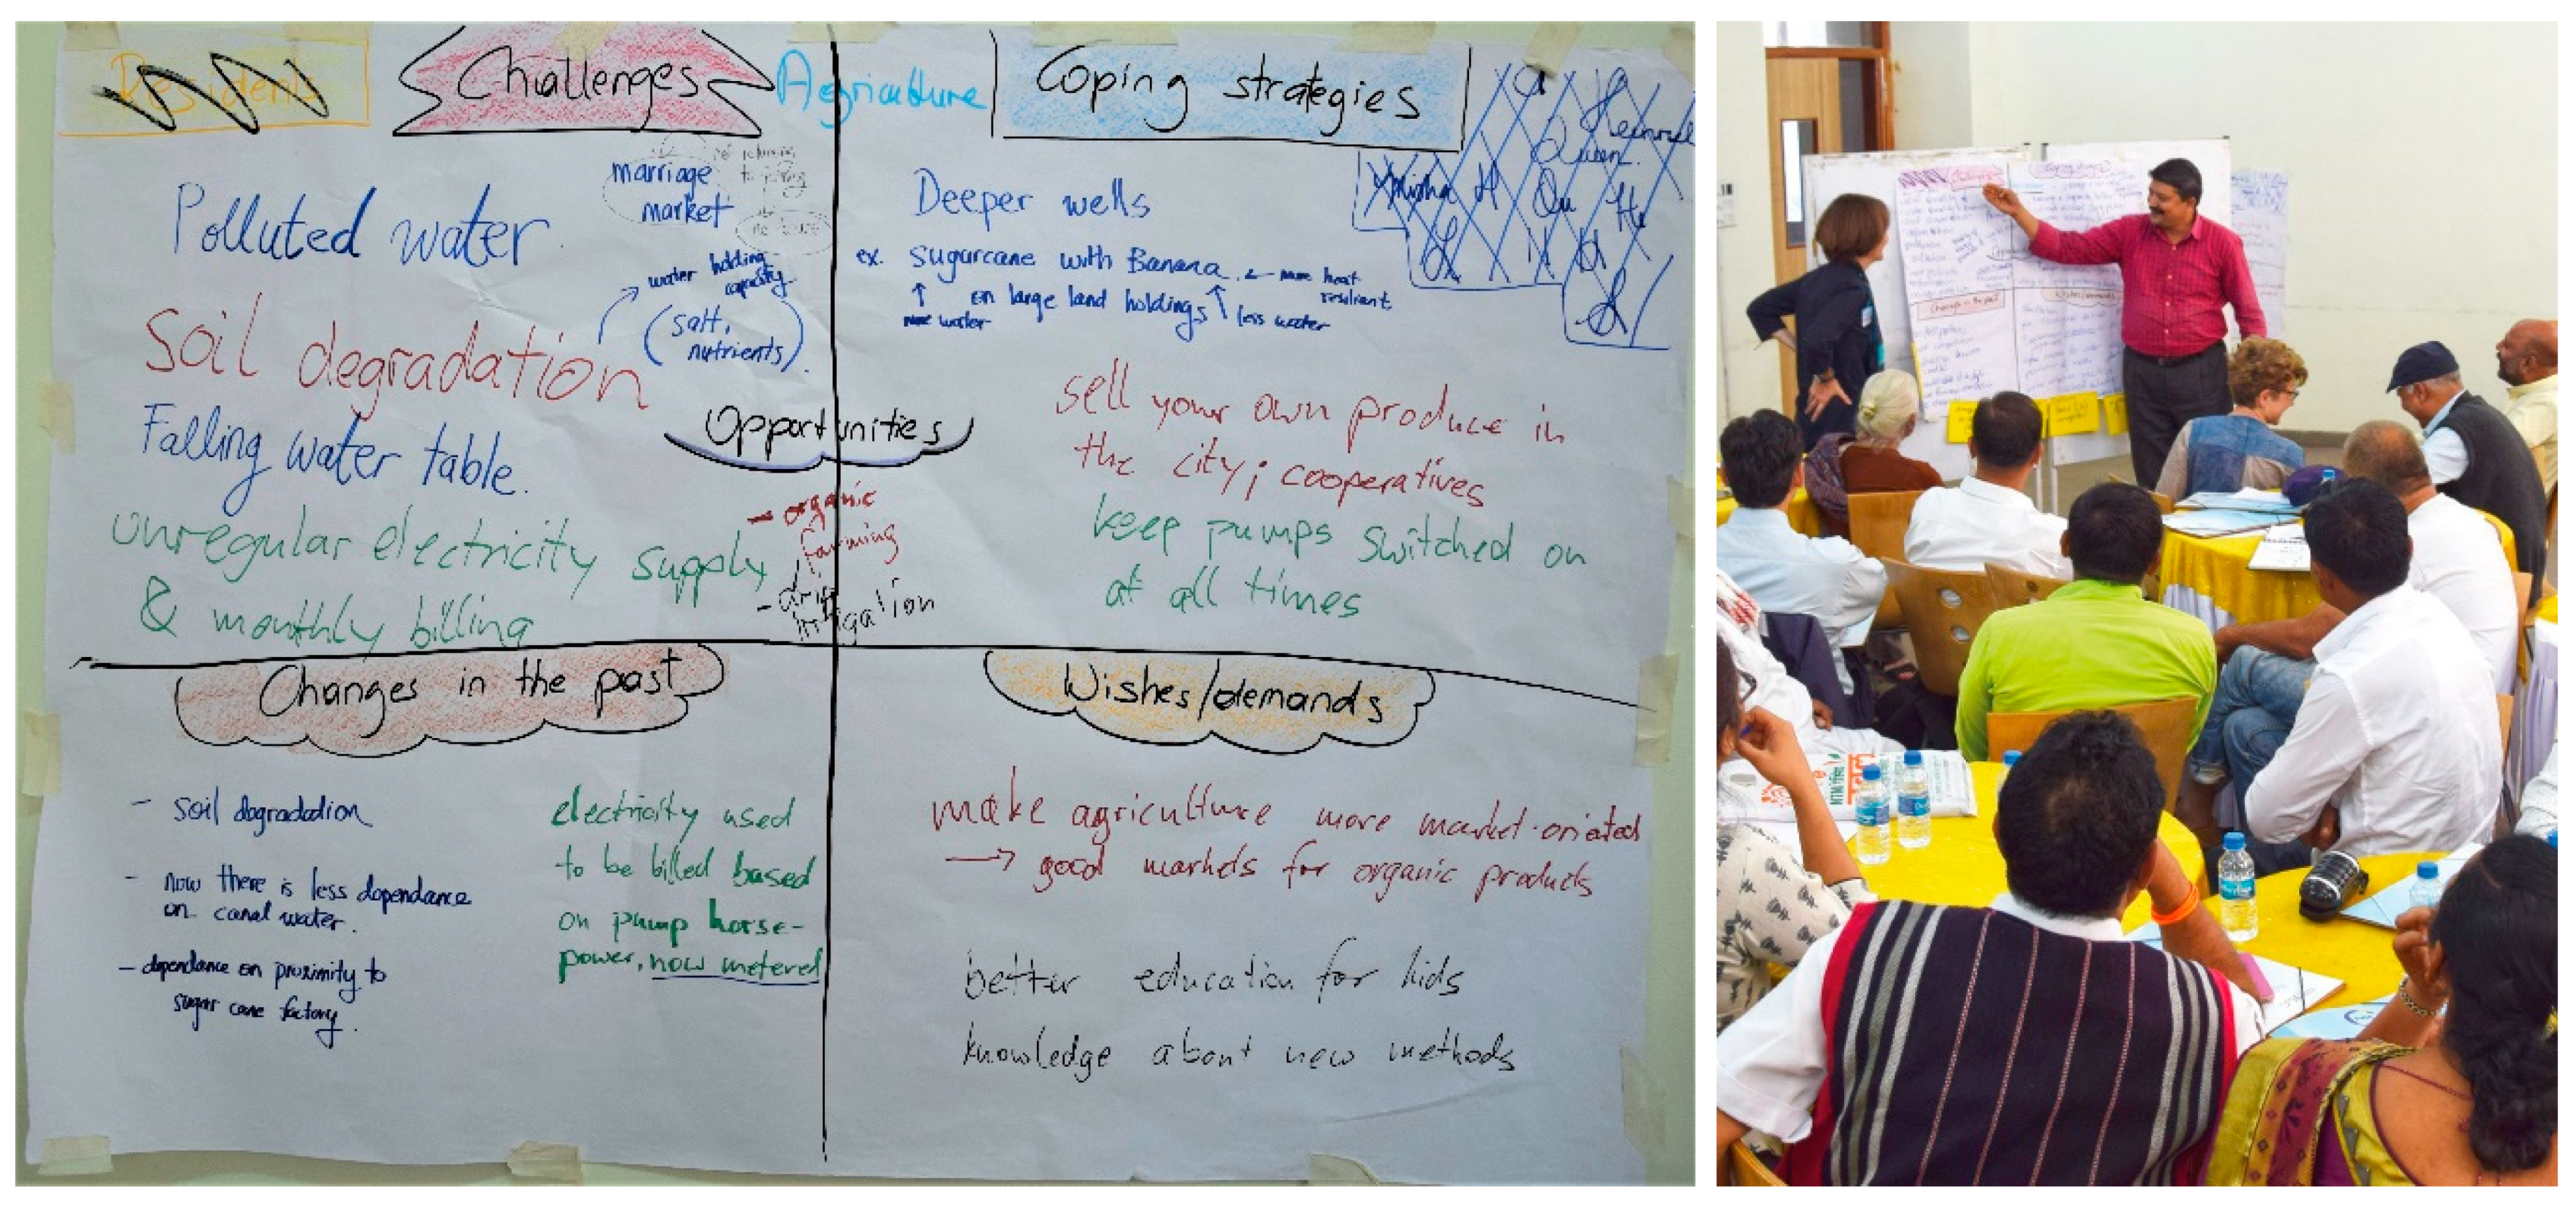 Residents
Challenges
Agriculture
Coping strategies
Polluted water
marriage
market
water holding
capacity
(salt,
nutrients).
Soil degradation
Falling water table.
unregular electricity supply
& monthly billing
Opportunities
- organic
farming
- drip
irrigation
Deeper wells
ex. sugarcane with Banana ← more heat
resilient
↑ on large land holdings ↑ less water
more water
sell your own produce in
the city; cooperatives
keep pumps switched on
at all times
Changes in the past
- soil degradation
- now there is less dependance
on canal water.
- dependance on proximity to
sugar cane factory.
electricity used
to be billed based
on pump horse-
power, now metered
Wishes/demands
make agriculture more market-oriented
→ good markets for organic products
better education for kids
knowledge about new methods